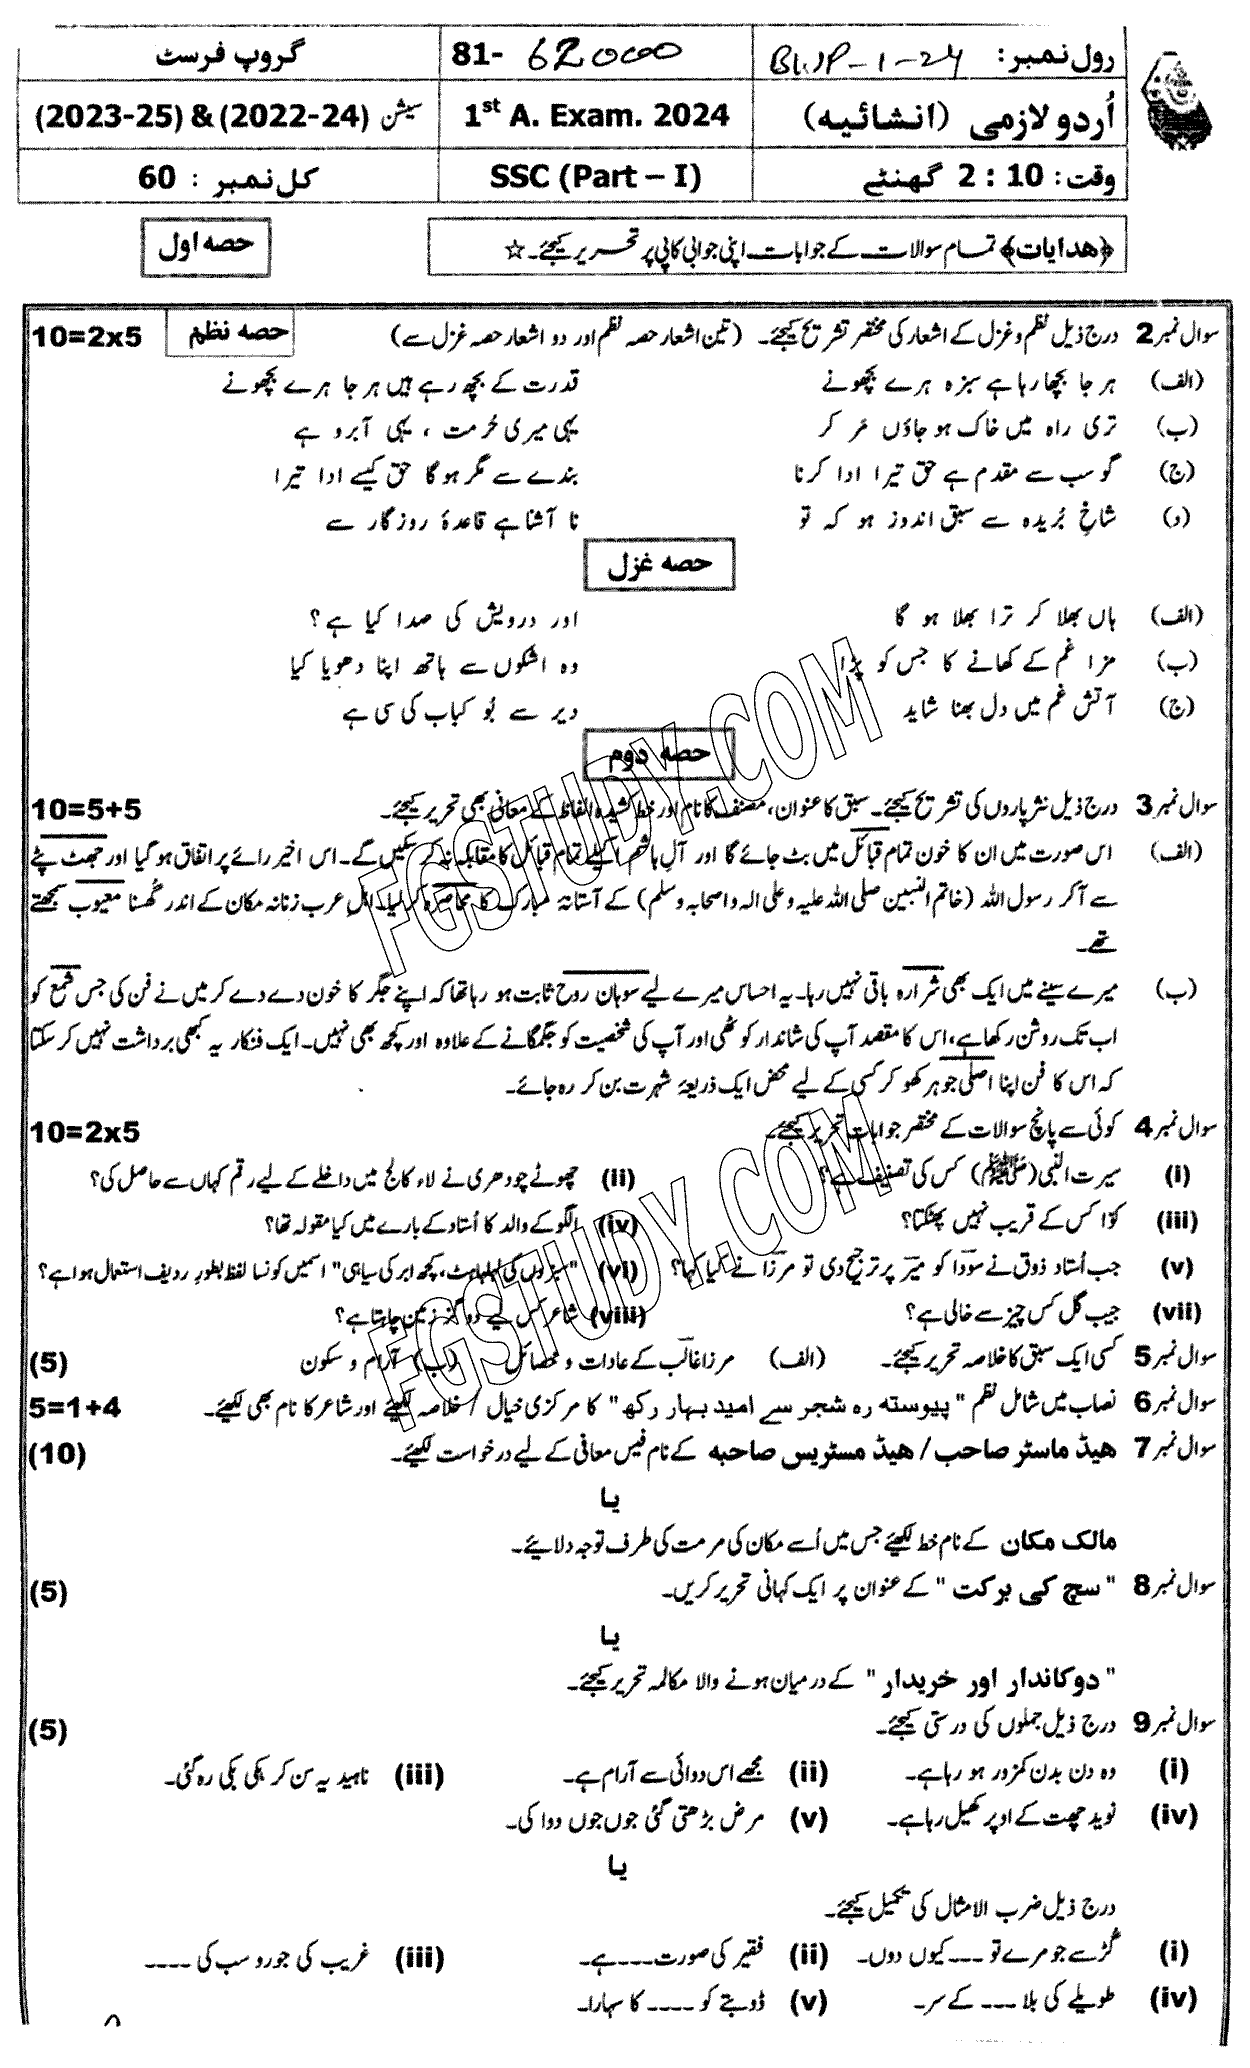 رول نمبر: BWP-1-24 81- 62000 گروپ فرسٹ
اُردو لازمی (انشائیہ) 1st A. Exam. 2024 سیشن (2022-24) & (2023-25)
وقت: 2 : 10 گھنٹے SSC (Part – I) کل نمبر : 60
﴿ھدایات﴾ تمام سوالات کے جوابات اپنی جوابی کاپی پر تحریر کیجئے۔ ☆ حصہ اول
سوال نمبر 2 درج ذیل نظم و غزل کے اشعار کی مختصر تشریح کیجئے۔ (تین اشعار حصہ نظم اور دو اشعار حصہ غزل سے) حصہ نظم 10=2x5
(الف) ہر جا بچھا رہا ہے سبزہ ہرے بچھونے قدرت کے بچھ رہے ہیں ہر جا ہرے بچھونے
(ب) تری راہ میں خاک ہو جاؤں مر کر یہی میری حُرمت ، یہی آبرو ہے
(ج) گو سب سے مقدم ہے حق تیرا ادا کرنا بندے سے مگر ہو گا حق کیسے ادا تیرا
(د) شاخِ بُریدہ سے سبق اندوز ہو کہ تو نا آشنا ہے قاعدۂ روزگار سے
حصہ غزل
(الف) ہاں بھلا کر ترا بھلا ہو گا اور درویش کی صدا کیا ہے؟
(ب) مزا غم کے کھانے کا جس کو پڑا وہ اشکوں سے ہاتھ اپنا دھویا کیا
(ج) آتش غم میں دل بھنا شاید دیر سے بُو کباب کی سی ہے
حصہ دوم
سوال نمبر 3 درج ذیل نثر پاروں کی تشریح کیجئے۔ سبق کا عنوان، مصنف کا نام اور خط کشیدہ الفاظ کے معانی بھی تحریر کیجئے۔ 10=5+5
(الف) اس صورت میں ان کا خون تمام قبائل میں بٹ جائے گا اور آلِ ہاشم اکیلے تمام قبائل کا مقابلہ نہ کر سکیں گے۔ اس اخیر رائے پر اتفاق ہو گیا اور جھٹ پٹے
سے آ کر رسول اللہ (خاتم النبیین صلی اللہ علیہ وعلی الہ واصحابہ وسلم) کے آستانۂ مبارک کا محاصرہ کر لیا۔ اہلِ عرب زنانہ مکان کے اندر گھسنا معیوب سمجھتے
تھے۔
(ب) میرے سینے میں ایک بھی شرارہ باقی نہیں رہا۔ یہ احساس میرے لیے سوہانِ روح ثابت ہو رہا تھا کہ اپنے جگر کا خون دے دے کر میں نے فن کی جس شمع کو
اب تک روشن رکھا ہے، اس کا مقصد آپ کی شاندار کوٹھی اور آپ کی شخصیت کو جگمگانے کے علاوہ اور کچھ بھی نہیں۔ ایک فنکار یہ کبھی برداشت نہیں کر سکتا
کہ اس کا فن اپنا اصلی جوہر کھو کر کسی کے لیے محض ایک ذریعۂ شہرت بن کر رہ جائے۔
سوال نمبر 4 کوئی سے پانچ سوالات کے مختصر جوابات تحریر کیجئے۔ 10=2x5
(i) سیرت النبی (ﷺ) کس کی تصنیف ہے؟ (ii) چھوٹے چودھری نے لاء کالج میں داخلے کے لیے رقم کہاں سے حاصل کی؟
(iii) کوّا کس کے قریب نہیں پھٹکتا؟ (iv) الگو کے والد کا اُستاد کے بارے میں کیا مقولہ تھا؟
(v) جب اُستاد ذوق نے سوداؔ کو میرؔ پر ترجیح دی تو مرزا نے کیا کہا؟ (vi) "سبزوں کی لہلہاہٹ، کچھ ابر کی سیاہی" اسمیں کونسا لفظ بطورِ ردیف استعمال ہوا ہے؟
(vii) جیب گل کس چیز سے خالی ہے؟ (viii) شاعر کس لیے دو گز زمین چاہتا ہے؟
سوال نمبر 5 کسی ایک سبق کا خلاصہ تحریر کیجئے۔ (الف) مرزا غالبؔ کے عادات و خصائل (ب) آرام و سکون (5)
سوال نمبر 6 نصاب میں شامل نظم "پیوستہ رہ شجر سے امید بہار رکھ" کا مرکزی خیال / خلاصہ لکھیئے اور شاعر کا نام بھی لکھیئے۔ 5=1+4
سوال نمبر 7 ھیڈ ماسٹر صاحب / ھیڈ مسٹریس صاحبہ کے نام فیس معافی کے لیے درخواست لکھیئے۔ (10)
یا
مالک مکان کے نام خط لکھیئے جس میں اُسے مکان کی مرمت کی طرف توجہ دلایئے۔
سوال نمبر 8 "سچ کی برکت" کے عنوان پر ایک کہانی تحریر کریں۔ (5)
یا
"دوکاندار اور خریدار" کے درمیان ہونے والا مکالمہ تحریر کیجئے۔
سوال نمبر 9 درج ذیل جملوں کی درستی کیجئے۔ (5)
(i) وہ دن بدن کمزور ہو رہا ہے۔ (ii) مجھے اس دوائی سے آرام ہے۔ (iii) ناہید یہ سن کر ہکی بکی رہ گئی۔
(iv) نوید چھت کے اوپر کھیل رہا ہے۔ (v) مرض بڑھتی گئی جوں جوں دوا کی۔
یا
درج ذیل ضرب الامثال کی تکمیل کیجئے۔
(i) گڑ سے جو مرے تو ۔۔۔ کیوں دوں۔ (ii) فقیر کی صورت ۔۔۔۔ ہے۔ (iii) غریب کی جورو سب کی ۔۔۔۔
(iv) طویلے کی بلا ۔۔۔ کے سر۔ (v) ڈوبتے کو ۔۔۔۔ کا سہارا۔
FGSTUDY.COM
FGSTUDY.COM